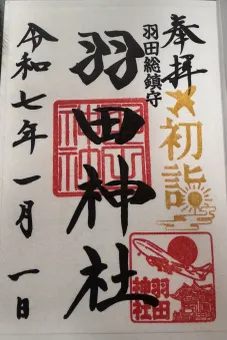 奉拝
初詣
羽田総鎮守
羽田神社
令和七年一月一日
羽田
神社